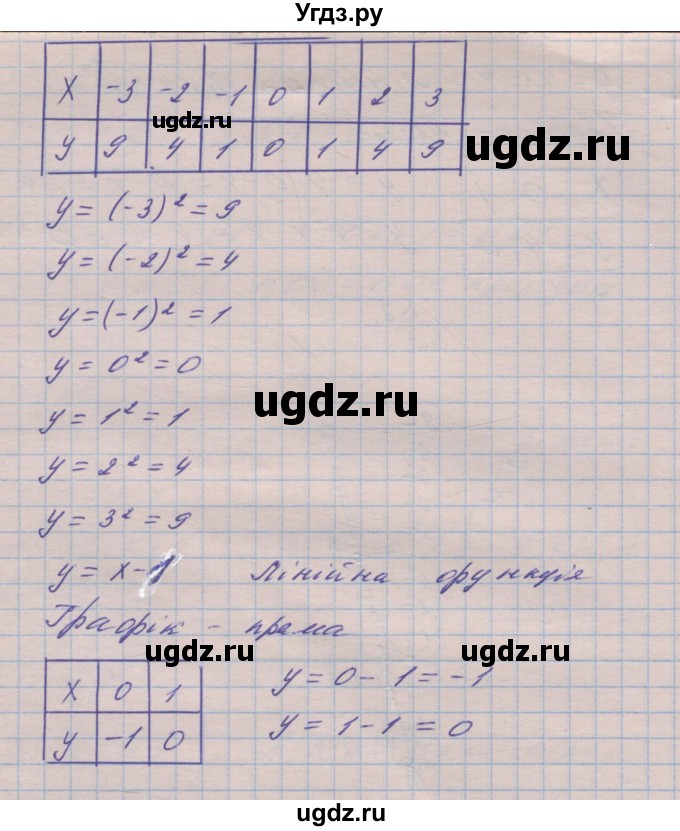 Угдз.ру
X -3 -2 -1 0 1 2 3
ugdz.ru
y 9 4 1 0 1 4 9
ugdz.ru
y = (-3)² = 9
y = (-2)² = 4
y = (-1)² = 1
y = 0² = 0
ugdz.ru
y = 1² = 1
y = 2² = 4
y = 3² = 9
y = x - 1 Лінійна функція
Графік - пряма
ugdz.ru ugdz.ru
X 0 1 y = 0 - 1 = -1
y -1 0 y = 1 - 1 = 0
ugdz.ru